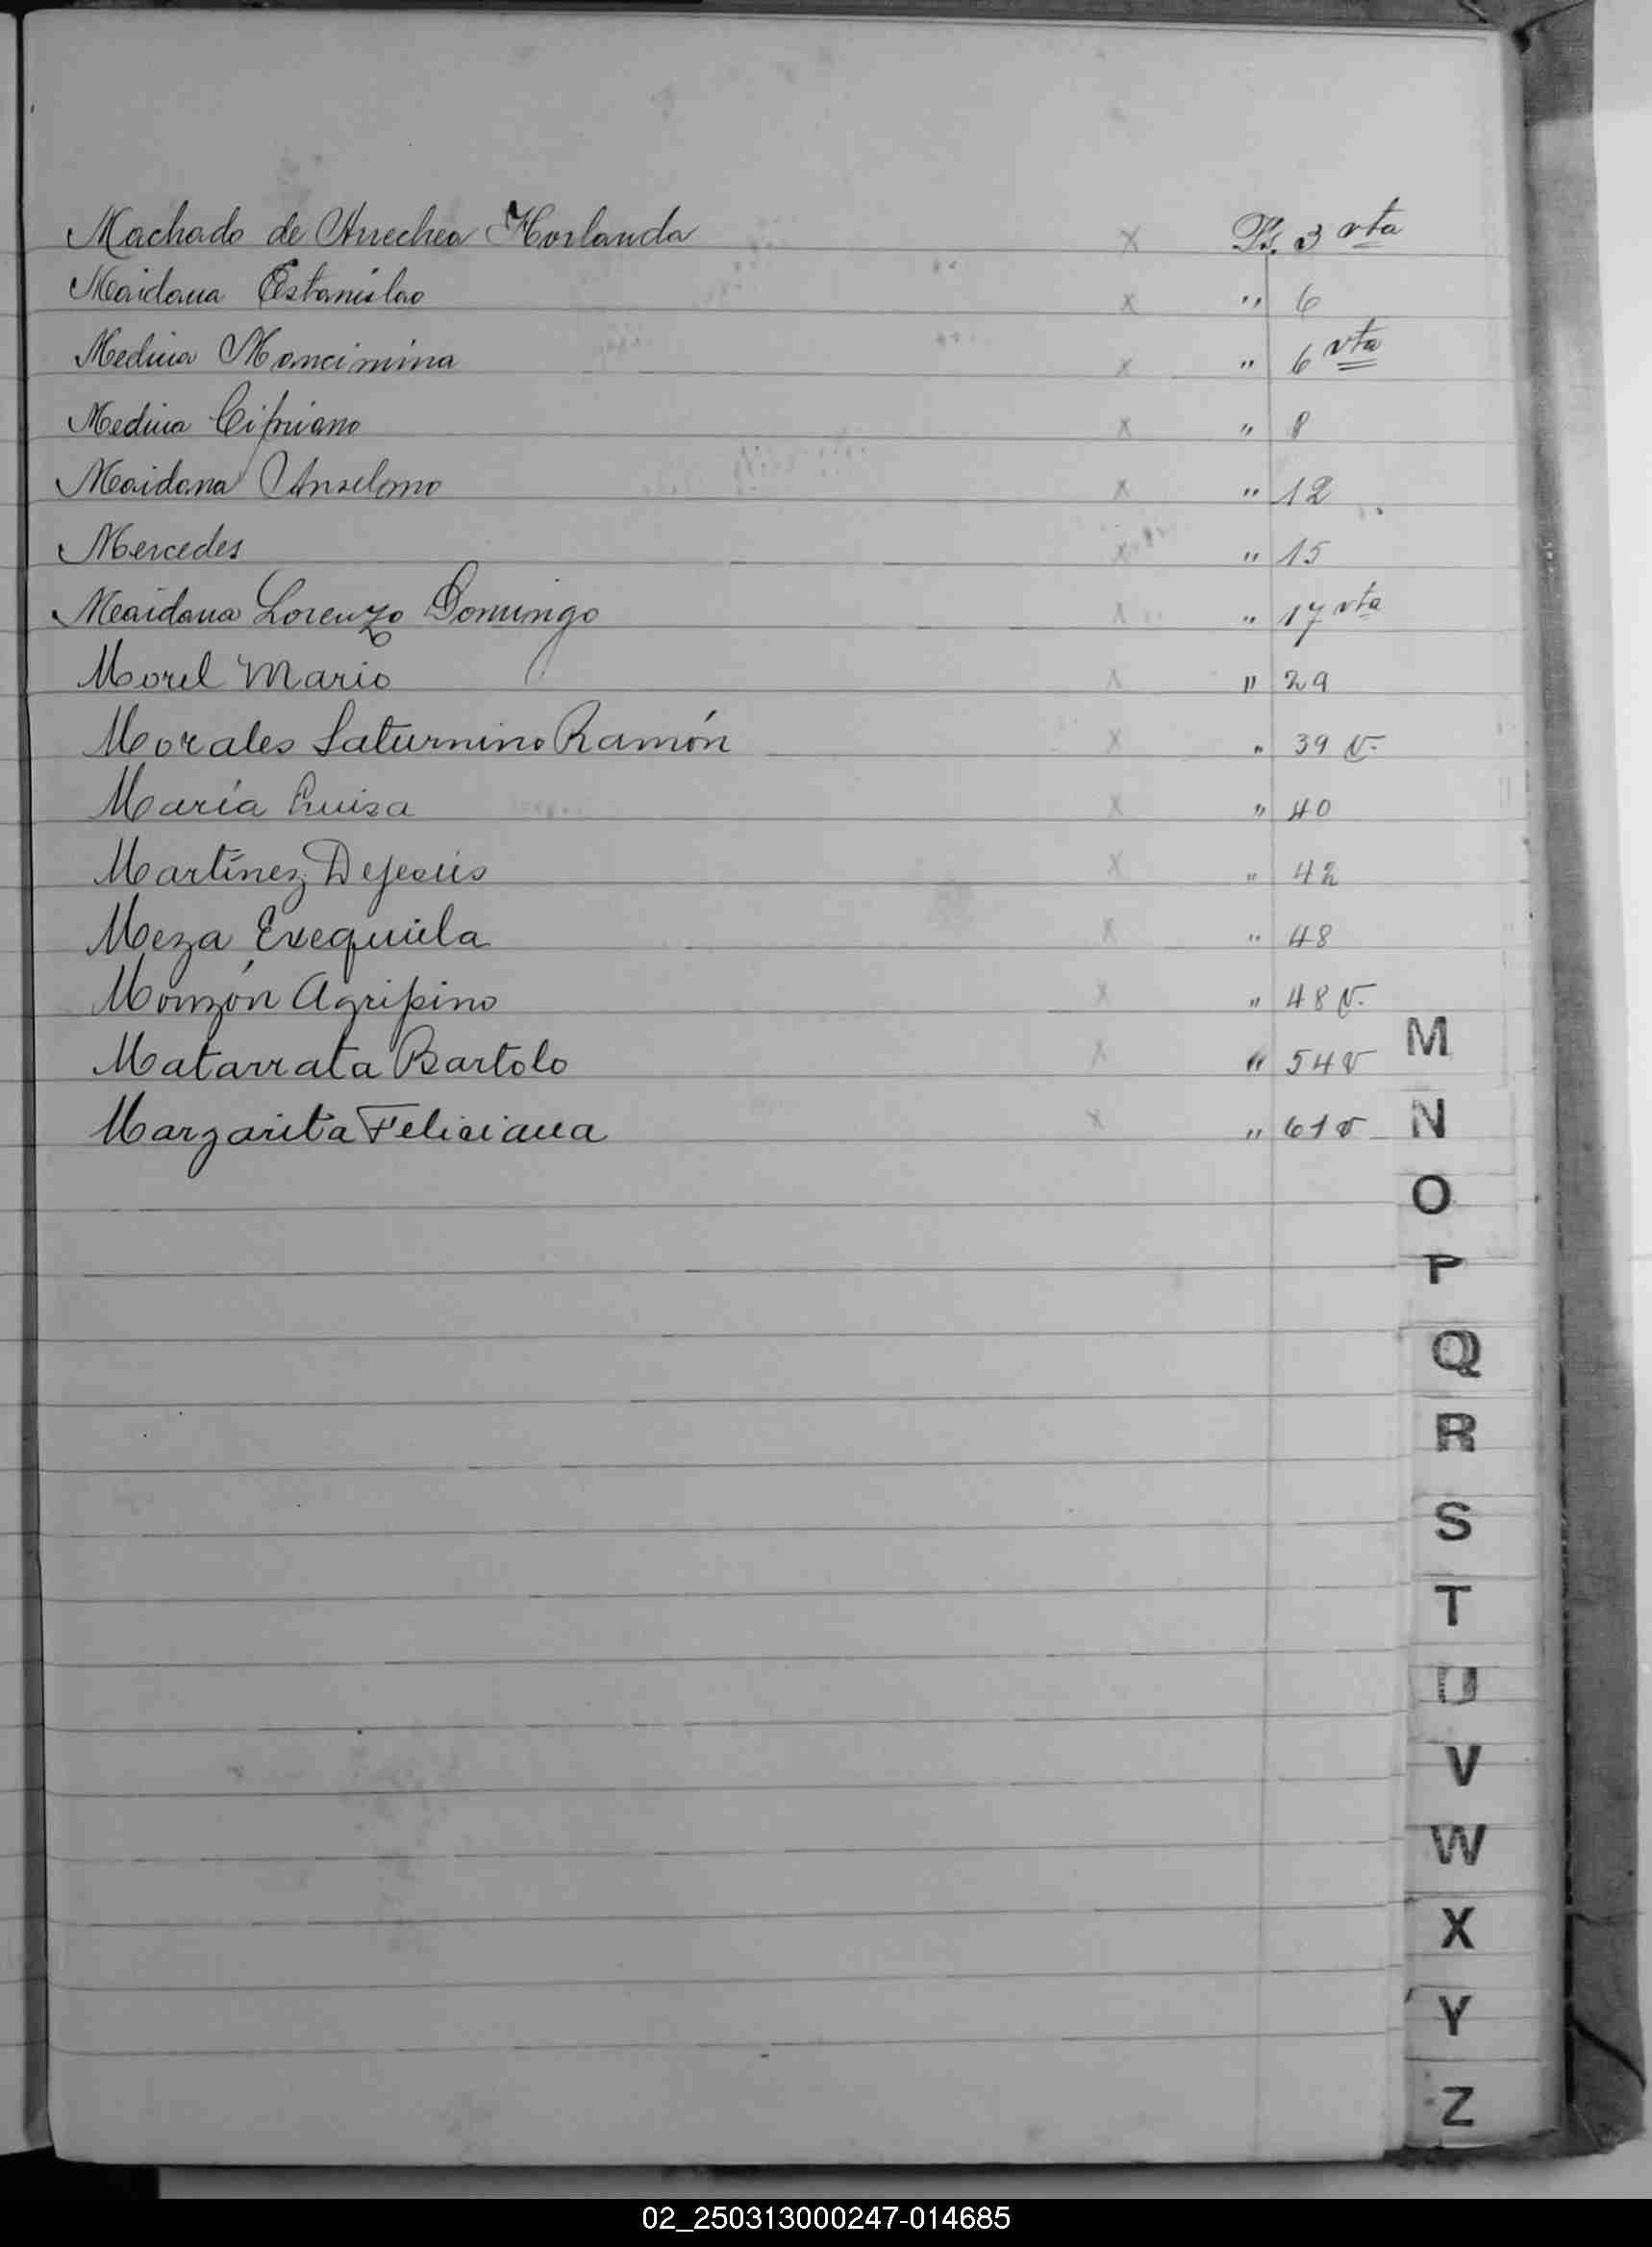 Machado de Arrechea Horlanda x Fs. 3 vta
Maidana Estanislao x " 6
Medina Mancimina x " 6 vta
Medina Cipriano x " 8
Maidana Anselmo x " 12
Mercedes x " 15
Maidana Lorenzo Domingo x " 17 vta
Morel Mario x " 29
Morales Saturnino Ramón x " 39 v.
María Luisa x " 40
Martínez Dejesús x " 42
Meza Exequiela x " 48
Monzón Agripino x " 48 v.
Matarrata Bartolo x " 54 v
Margarita Feliciana x " 61 v
M
N
O
P
Q
R
S
T
U
V
W
X
Y
Z
02_250313000247-014685